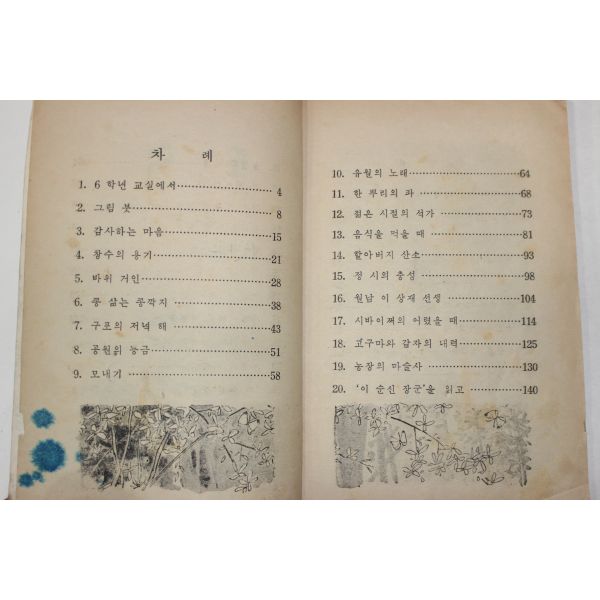 차 례
1. 6 학년 교실에서 4
2. 그림 붓 8
3. 감사하는 마음 15
4. 창수의 용기 21
5. 바위 거인 28
6. 콩 삶는 콩깍지 38
7. 구포의 저녁 해 43
8. 공원의 능금 51
9. 모내기 58
10. 유월의 노래 64
11. 한 뿌리의 파 68
12. 젊은 시절의 석가 73
13. 음식을 먹을 때 81
14. 할아버지 산소 93
15. 정 시의 충성 98
16. 월남 이 상재 선생 104
17. 시바이쩌의 어렸을 때 114
18. 고구마와 감자의 내력 125
19. 농장의 마술사 130
20. '이 순신 장군'을 읽고 140